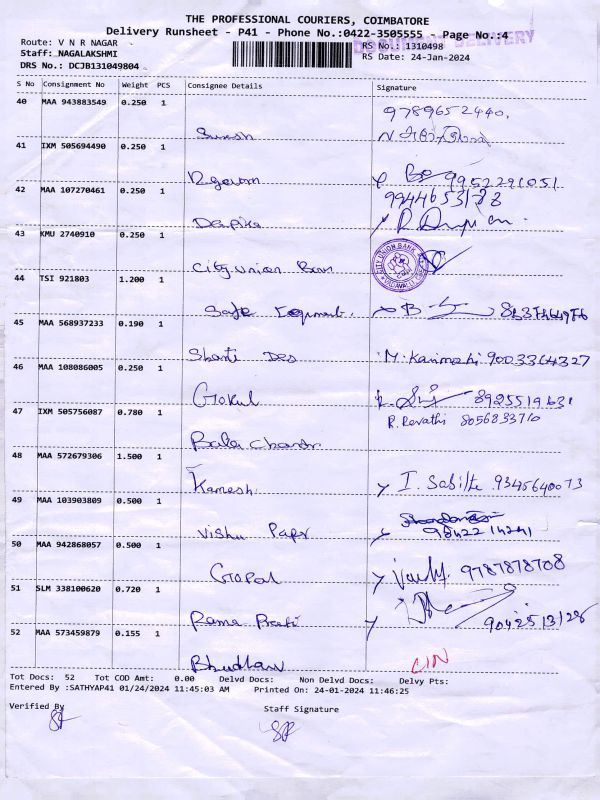 THE PROFESSIONAL COURIERS, COIMBATORE
Delivery Runsheet - P41 - Phone No.:0422-3505555 - Page No.:4
Route: V N R NAGAR RS No.: 1310498
Staff: NAGALAKSHMI RS Date: 24-Jan-2024
DRS No.: DCJB131049804
S No Consignment No Weight PCS Consignee Details Signature
40 MAA 943883549 0.250 1 9789652440.
Suresh
41 IXM 505694490 0.250 1
9952291051
42 MAA 107270461 0.250 1
Depika
43 KMU 2740910 0.250 1 CITY UNION BANK
City Union Ban
44 TSI 921803 1.200 1
Safe
45 MAA 568937233 0.190 1
Shanti Des M. Karimathi 9003364327
46 MAA 108086005 0.250 1
Gokul 8925519631
47 IXM 505756087 0.780 1 R. Revathi 8056833710
Bala Chandr
48 MAA 572679306 1.500 1
Kamesh I. Sabitha 9345640073
49 MAA 103903809 0.500 1
Vishu Papr 9842214241
50 MAA 942868057 0.500 1
Gopal 9787878708
51 SLM 338100620 0.720 1
Rama Prati 9042513128
52 MAA 573459879 0.155 1
CIN
Tot Docs: 52 Tot COD Amt: 0.00 Delvd Docs: Non Delvd Docs: Delvy Pts:
Entered By :SATHYAP41 01/24/2024 11:45:03 AM Printed On: 24-01-2024 11:46:25
Verified By Staff Signature